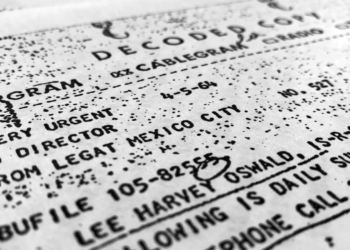 DECODED COPY
CABLEGRAM RADIO
GRAM
4-5-64
ERY URGENT
NO. 527
DIRECTOR
ROM LEGAT MEXICO CITY
BUFILE 105-82555
LEE HARVEY OSWALD, IS-R
LLOWING IS DAILY
EPHONE CALL